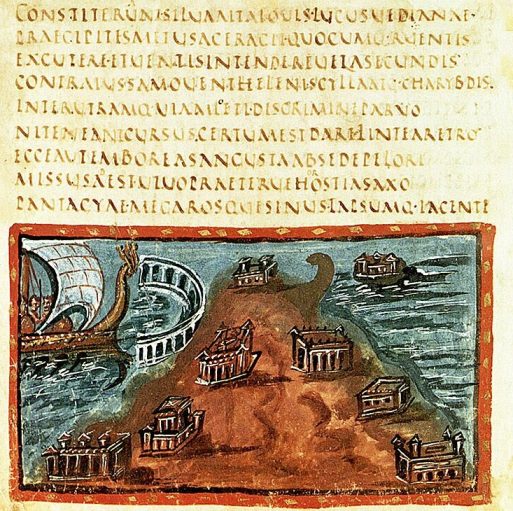 CONSTITERUNT·SILUAALTAIOUIS·LUCUSUEDIANAE·
PRAECIPITESMETUSACERAGIT·QUOCUMQ·RUDENTIS
EXCUTERE·ETUENTISINTENDEREUELASECUNDIS
CONTRAIUSSAMOUENTHELENISCYLLAMQ·CHARYBDIS·
INTERUTRAMQUIAMLETI·DISCRIMINEPARUO
NITENEANTCURSUS·CERTUMESTDARELINTEARETRO
ECCEAUTEMBOREASANGUSTAABSEDEPELORI
MISSUSADEST·UIUOPRAETERUEHOROSTIASAXO
PANTAGYAEMEGAROSQUESINUSTAPSUMQ·IACENTE